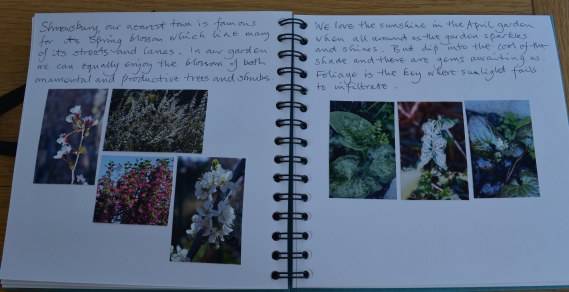 Shrewsbury our nearest town is famous
for its Spring blossom which line many
of its streets and lanes. In our garden
we can equally enjoy the blossom of both
ornamental and productive trees and shrubs.
We love the sunshine in the April garden
when all around us the garden sparkles
and shines. But dip into the cool of the
shade and there are gems awaiting us.
Foliage is the key where sunlight fails
to infiltrate.